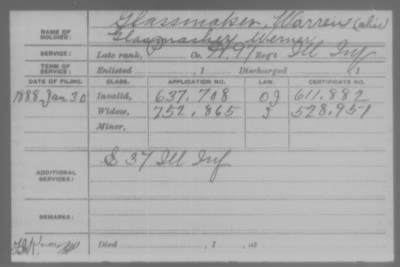 NAME OF SOLDIER: Glassmaker, Warren (alias)
Glassmacher, Werner
SERVICE: Late rank, Co. H, 97 Reg't Ill Inf
TERM OF SERVICE: Enlisted , 1 Discharged , 1
DATE OF FILING. CLASS. APPLICATION NO. LAW. CERTIFICATE NO.
1888 Jan 30 Invalid, 637.708 OJ 611.882
Widow, 752.865 3 528.951
Minor,
ADDITIONAL SERVICES: E 37 Ill Inf
REMARKS:
Died , 1 , at